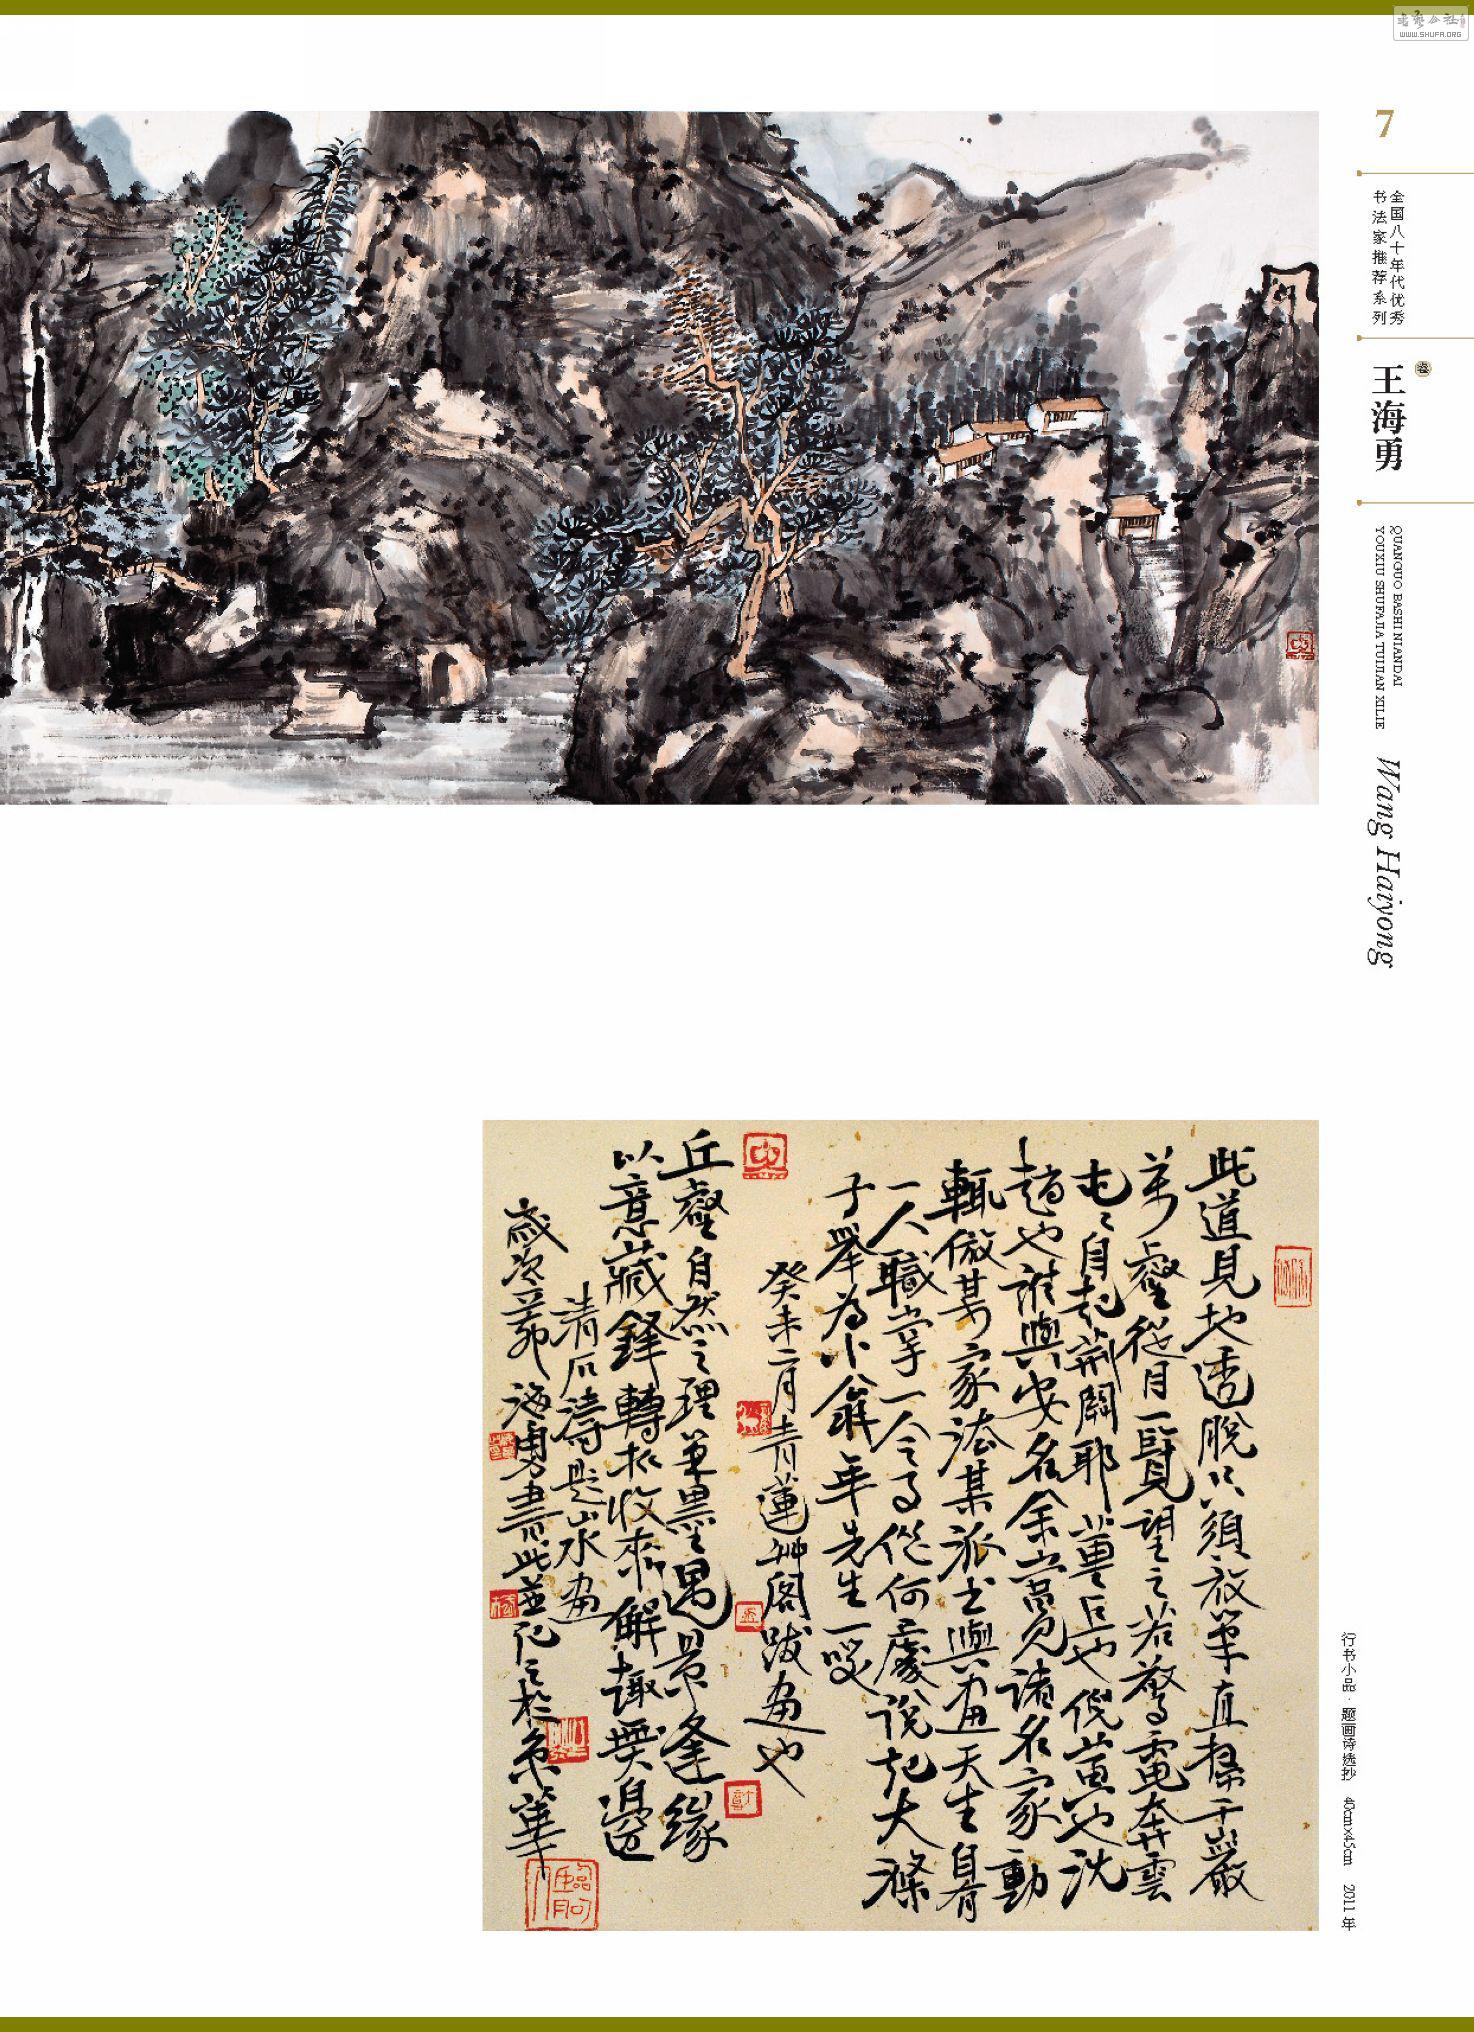 書藝公社
WWW.SHUFA.ORG
7
全国八十年代优秀
书法家推荐系列
王海勇
卷
QUANGUO BASHI NIANDAI
YOUXIU SHUFAJIA TUIJIAN XILIE
Wang Haiyong
此道見地透脫只須放筆直掃千巖
萬壑從目一覽望之若驚電奔雲
屯屯自起荊關耶董巨也倪黃也沈
趙也誰與安名余嘗見諸名家動
輒倣某家法某派书與畫天生自有
一人職掌一人之事從何處說起大滌
子舉為小翁年先生一噱
癸未二月青蓮艸閣跋畫也
丘壑自然之理筆墨遇景逢緣
以意藏鋒轉折收來解趣無邊
清石濤題山水畫
歲次辛卯海勇書此並記之於京華
行书小品·题画诗选抄 45cm×45cm 2011年